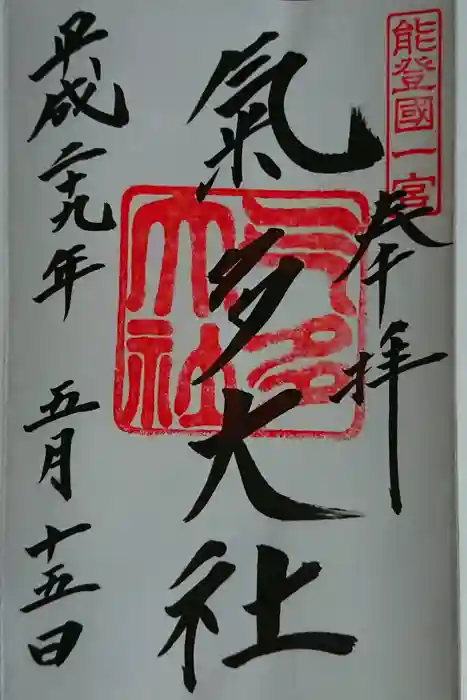 能登國一宮
奉拝
氣多大社
气多大社
平成二十九年 五月十五日